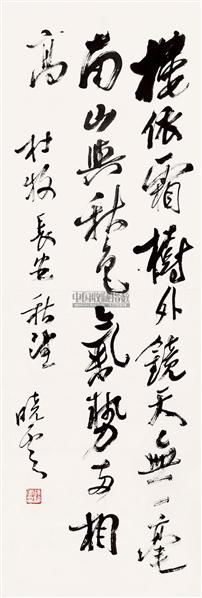 樓依霜樹外鏡天無一毫
南山與秋色氣勢兩相
高
杜牧長安秋望
曉雲
中国收藏指数